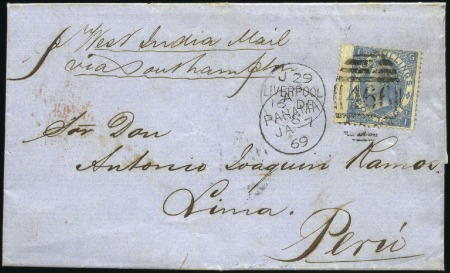 p West India Mail
via Southampton
LIVERPOOL
PANAMA
JA 7
69
466
SHILLINGS
Sor Don
Antonio Joaquin Ramos.
Lima.
Perú